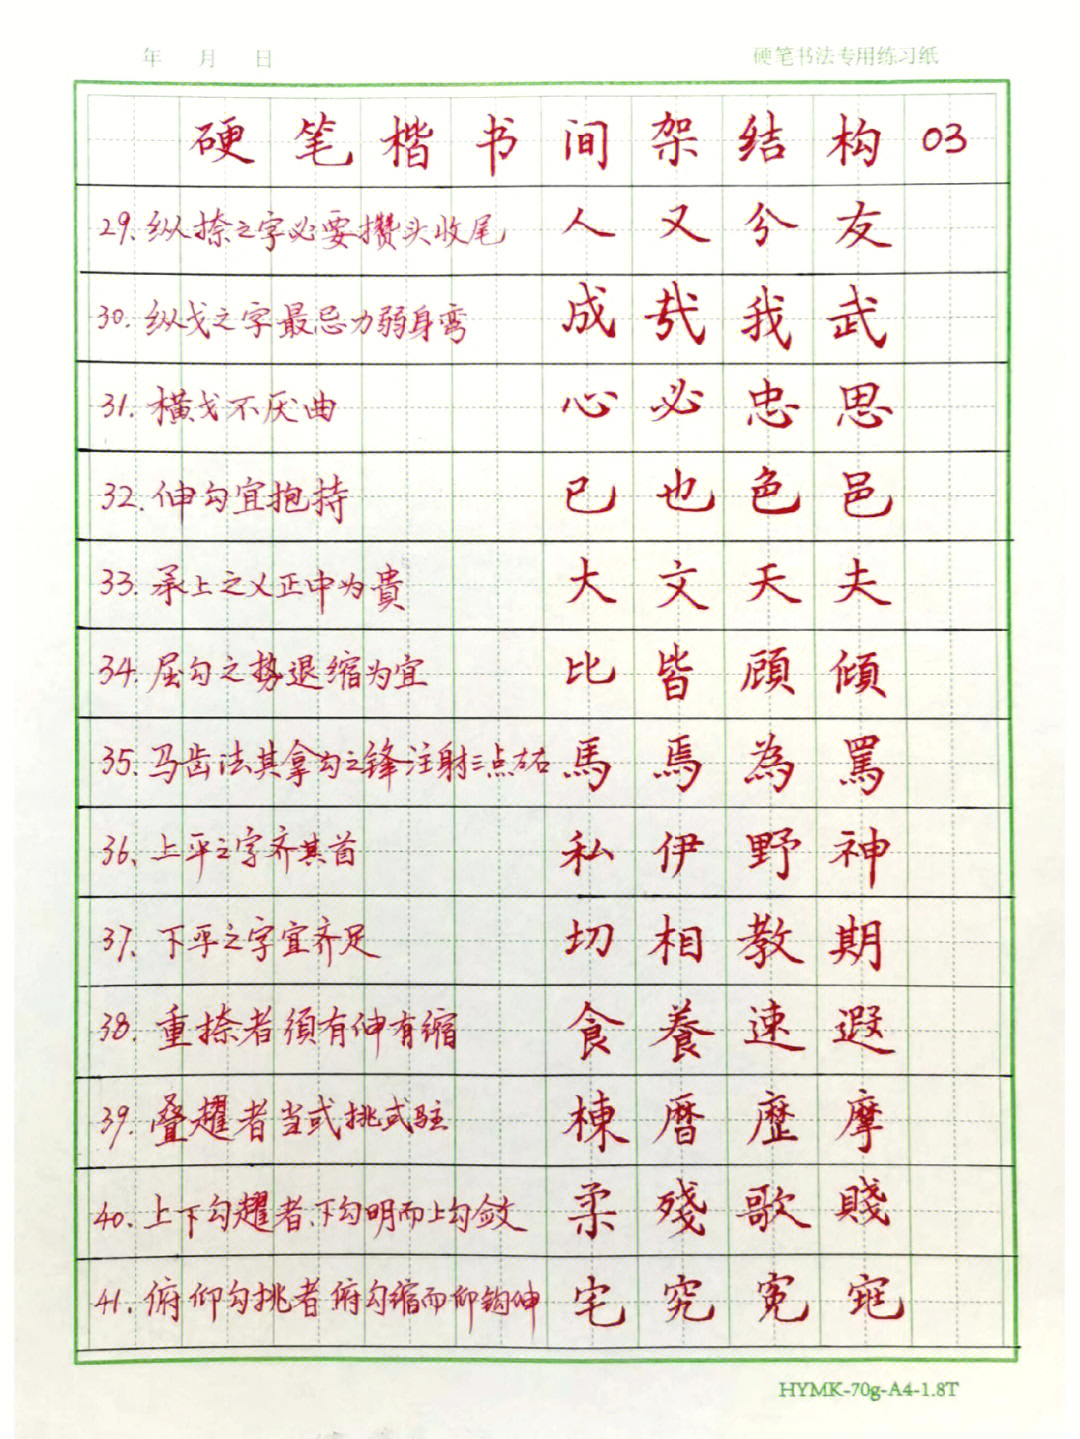 年 月 日
硬笔书法专用练习纸
硬笔楷书间架结构03
29.纵捺之字必要攒头收尾 人又兮友
30.纵戈之字最忌力弱身弯 成哉我武
31.横戈不厌曲 心必忠思
32.伸勾宜抱持 已也色邑
33.承上之乂正中为貴 大文天夫
34.屈勾之势退缩为宜 比皆頋傾
35.马齿法其拿勾之锋注射三点左右 馬焉為罵
36.上平之字齐其首 私伊野神
37.下平之字宜齐足 切相教期
38.重捺者須有伸有缩 食養速遐
39.叠趯者当或挑或驻 棟曆歷摩
40.上下勾趯者、下勾明而上勾敛 柔殘歌賤
41.俯仰勾挑者俯勾缩而仰鈎伸 宅究寃
HYMK-70g-A4-1.8T